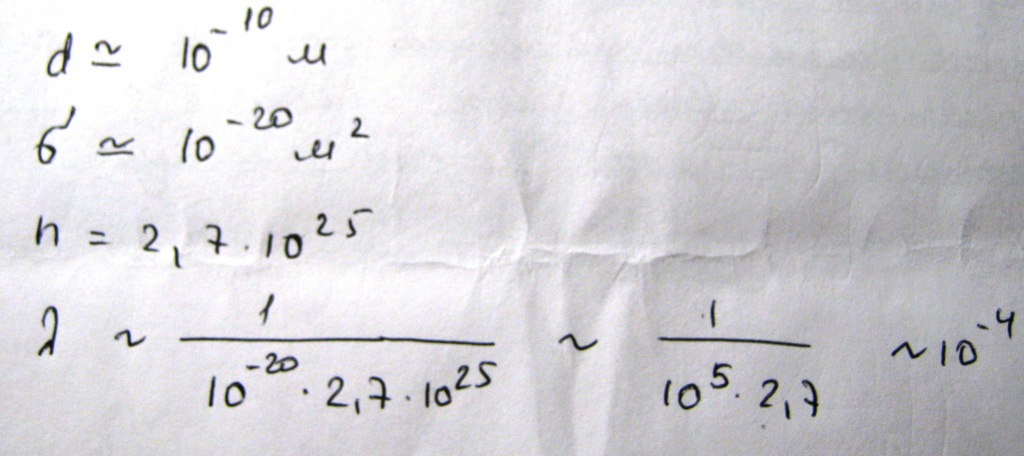 d ≃ 10⁻¹⁰ м
σ ≃ 10⁻²⁰ м²
n = 2,7·10²⁵
λ ~ 1/(10⁻²⁰ · 2,7·10²⁵) ~ 1/(10⁵·2,7) ~10⁻⁴